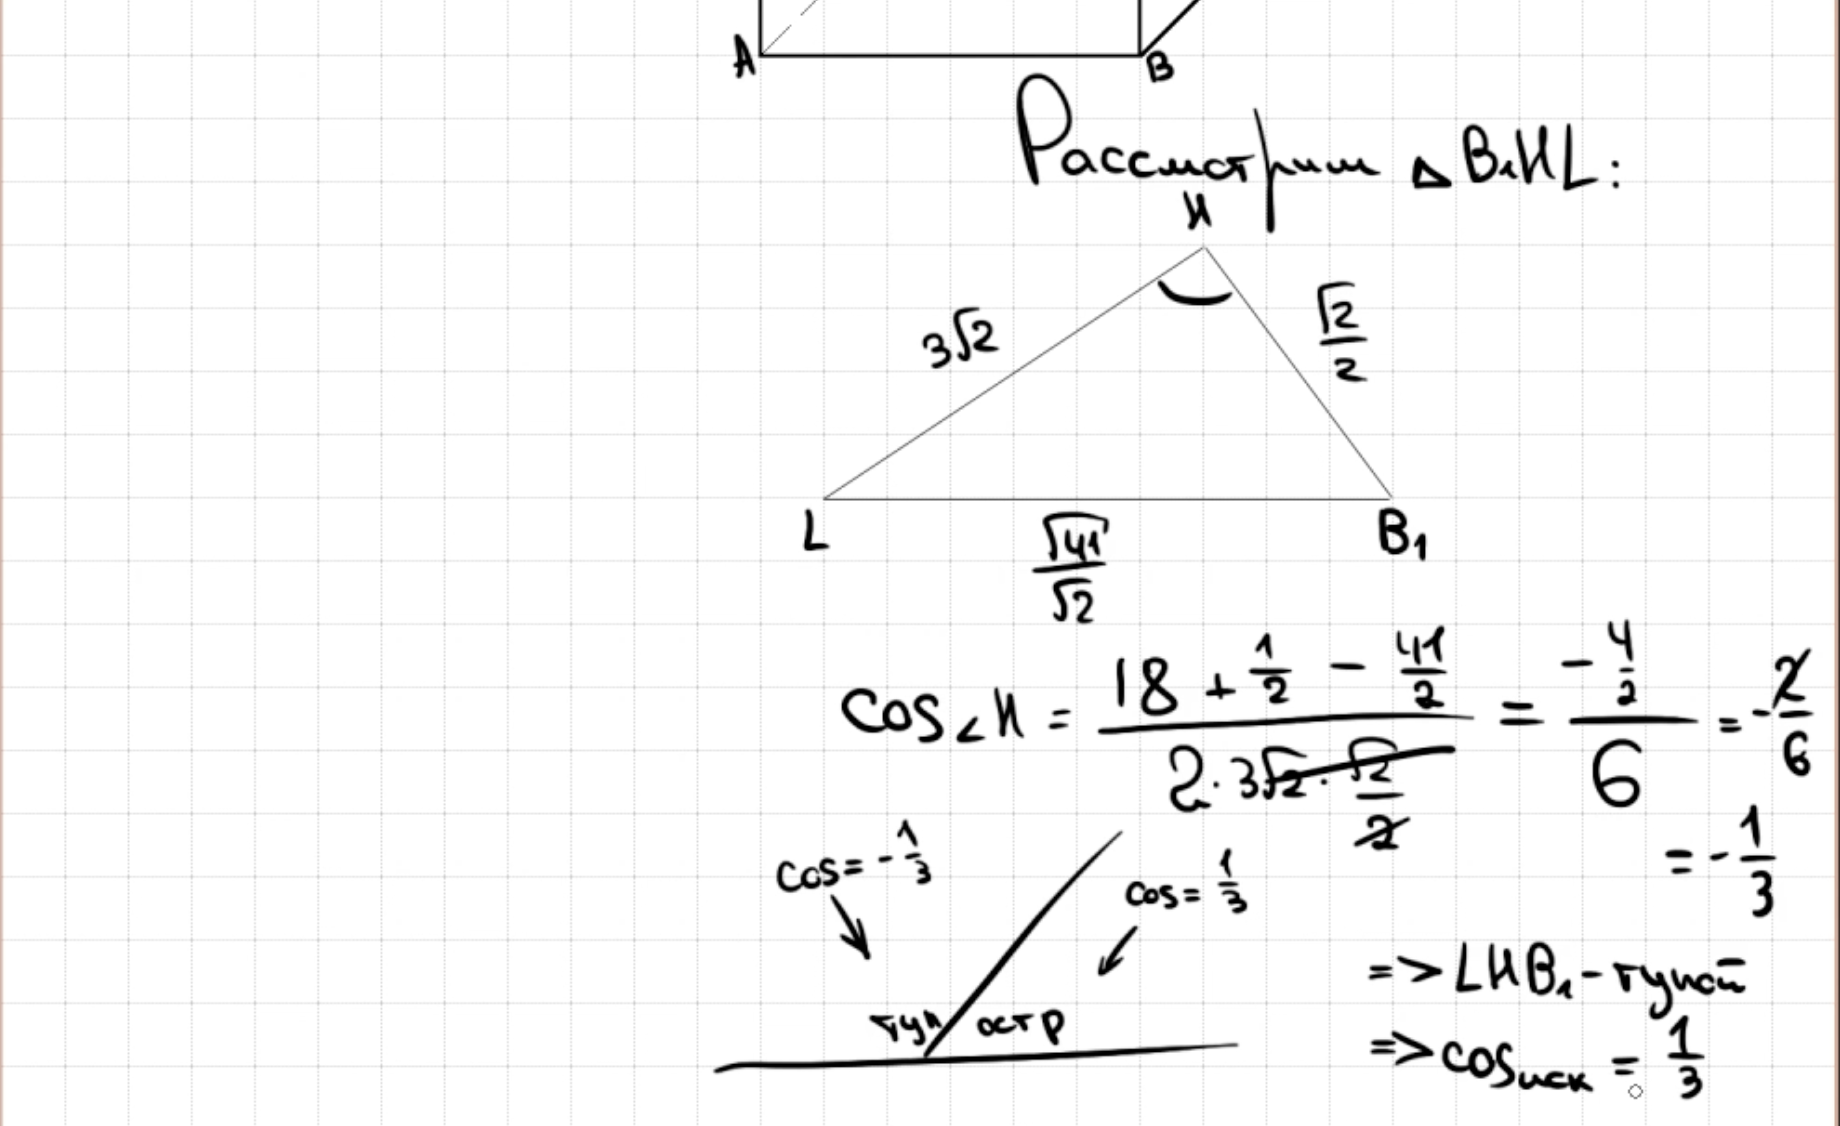 A B
Рассмотрим △B₁HL:
H
3√2
√2/2
L B₁
√41/√2
cos∠H = (18 + 1/2 − 41/2)/(2·3√2·√2/2) = (−4/2)/6 = −2/6
= −1/3
cos = −1/3 cos = 1/3
туп остр
=> LHB₁ - тупой
=> cos иск = 1/3